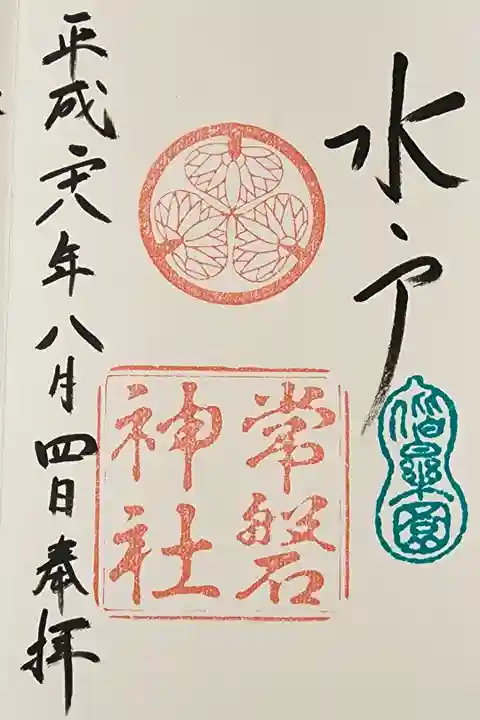 水戸
偕樂園
常磐
神社
平成廿八年八月四日奉拝